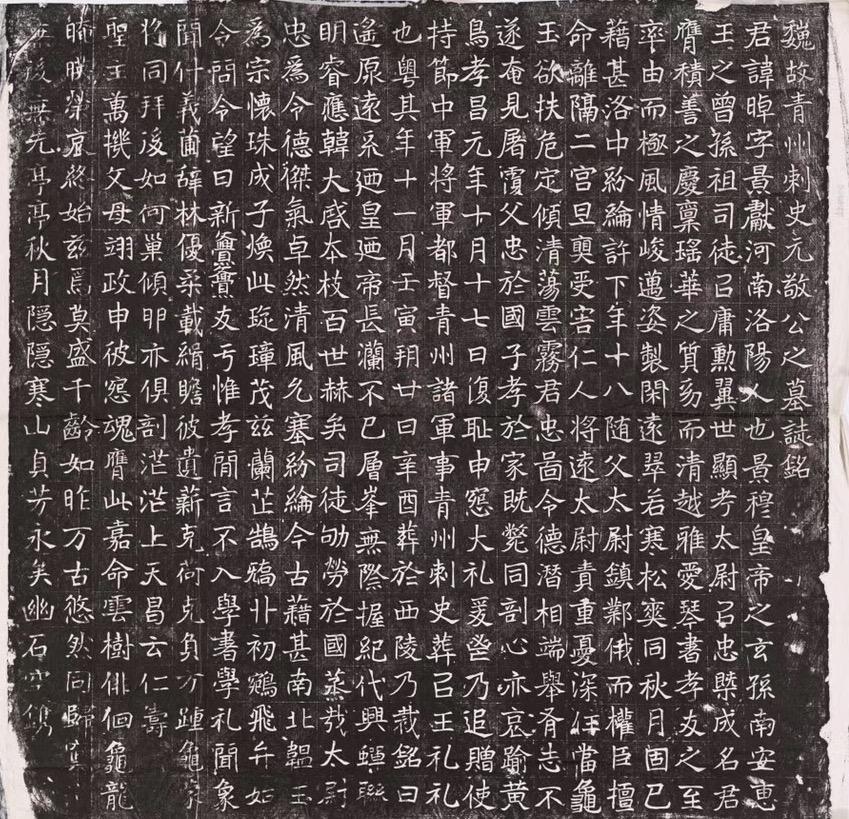 魏故青州刺史元敬公之墓誌銘
君諱晫字景獻河南洛陽人也景穆皇帝之玄孫南安惠
王之曾孫祖司徒吕庸勲翼世顯考太尉吕忠槩成名君
膺積善之慶稟瑤華之質㓜而清越雅愛琴書孝友之至
率由而極風情峻邁姿製閑遠翠若寒松奭同秋月固巳
藉甚洛中紛綸許下年十八随父太尉鎮鄴俄而權臣擅
命離隔二宮旦奭受害仁人將遠太尉責重憂深任當龜
玉欲扶危定傾清蕩雲霧君忠啚令德潛相端舉脊志不
遂奄見屠覆父忠於國子孝於家既斃同剖心亦哀踰黄
鳥孝昌元年十月十七日復耻申冤大礼爰啓乃追贈使
持節中軍將軍都督青州諸軍事青州刺史葬吕王礼礼
也粤其年十一月壬寅朔廿日辛酉葬於西陵乃裁銘曰
遥原遠系廼皇廼帝長瀾不已層峯無際握紀代興蟬聯
明睿應韓大啓本枝百世赫矣司徒劬勞於國蒸哉太尉
忠爲令德傑氣卓然清風允塞紛綸今古藉甚南北韞玉
爲宗懷珠成子煥此琁璋茂兹蘭芷鵠鷮丱初鵷飛弁始
令問令望日新亹亹友亏惟孝閒言不入學書學礼聞象
聞什義圃辞林優柔載緝瞻彼遺薪克荷克負方踵龜
将同拜後如何巢傾卵亦俱剖茫茫上天昌云仁壽
聖主萬機父母翊政申彼冤魂膺此嘉命雲樹俳佪龜龍
晻暎榮哀終始兹爲莫盛千齡如昨万古悠然同歸
無後無先亭亭秋月隠隠寒山貞芳永矣幽石空鐫